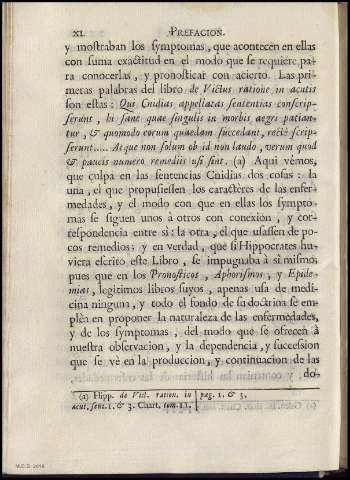 XL PREFACION.
y mostraban los symptomas, que acontecen en ellas
con suma exactitud en el modo que se requiere pa-
ra conocerlas, y pronosticar con acierto. Las pri-
meras palabras del libro de Victus ratione in acutis
son estas: Qui Cnidias appellatas sententias conscrip-
serunt, hi sane quae singulis in morbis aegri patian-
tur, & quomodo eorum quaedam succedant, recté scrip-
serunt..... Atque non solum ob id non laudo, verum quod
& paucis numero remediis usi sint. (a) Aqui vémos,
que culpa en las sentencias Cnidias dos cosas: la
una, el que propusiessen los caractéres de las enfer-
medades, y el modo con que en ellas los sympto-
mas se siguen unos à otros con conexion, y cor-
respondencia entre sì: la otra, el que usassen de po-
cos remedios; y en verdad, que si Hippocrates hu-
viera escrito este Libro, se impugnaba à sì mismo,
pues que en los Pronosticos, Aphorismos, y Epide-
mias, legitimos libros suyos, apenas usa de medi-
cina ninguna, y todo el fondo de su doctrina se em-
plèa en proponer la naturaleza de las enfermedades,
y de los symptomas, del modo que se ofrecen à
nuestra observacion, y la dependencia, y succession
que se vè en la produccion, y continuacion de las
do-
(a) Hipp. de Vict. ration. in
acut. sent. 1. & 3. Chart. tom. 11.
pag. 1. & 5.
M.C.D. 2018